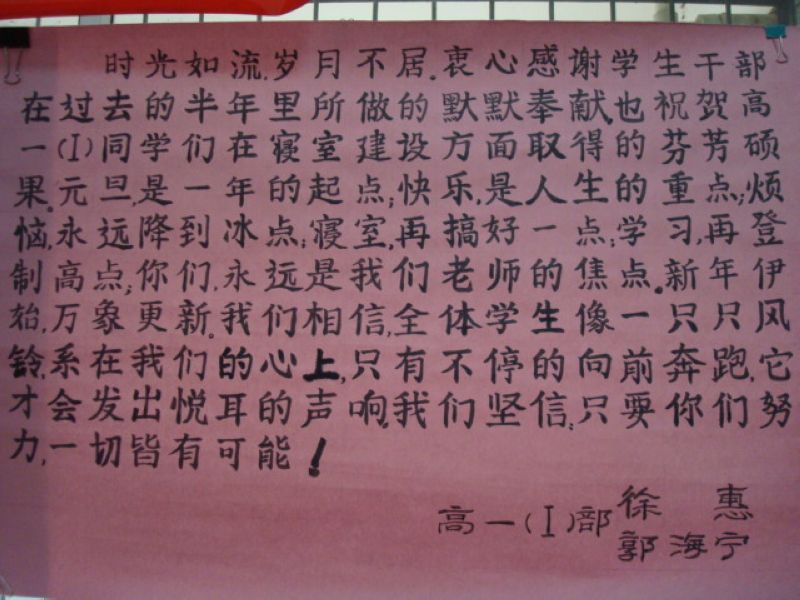 时光如流,岁月不居,衷心感谢学生干部
在过去的半年里所做的默默奉献,也祝贺高
一(I)同学们在寝室建设方面取得的芬芳硕
果。元旦,是一年的起点;快乐,是人生的重点;烦
恼,永远降到冰点;寝室,再搞好一点;学习,再登
制高点;你们,永远是我们老师的焦点。新年伊
始,万象更新。我们相信,全体学生像一只只风
铃,系在我们的心上,只有不停的向前奔跑,它
才会发出悦耳的声响,我们坚信:只要你们努
力,一切皆有可能!
高一(I)部徐惠
郭海宁